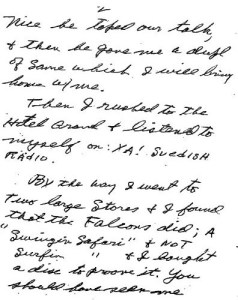 2
Nice he taped our talk,
& then he gave me a dupl
of Same which I will bring
home w/me.
Then I rushed to the
Hotel Grand & listened to
myself on: YA! SWEDISH
RADIO.
By the way I went to
Two large Stores & I found
that the Falcons did; A
"Swingin Safari" & NOT
Surfin " & I bought
a disc to proove it. You
should have seen me